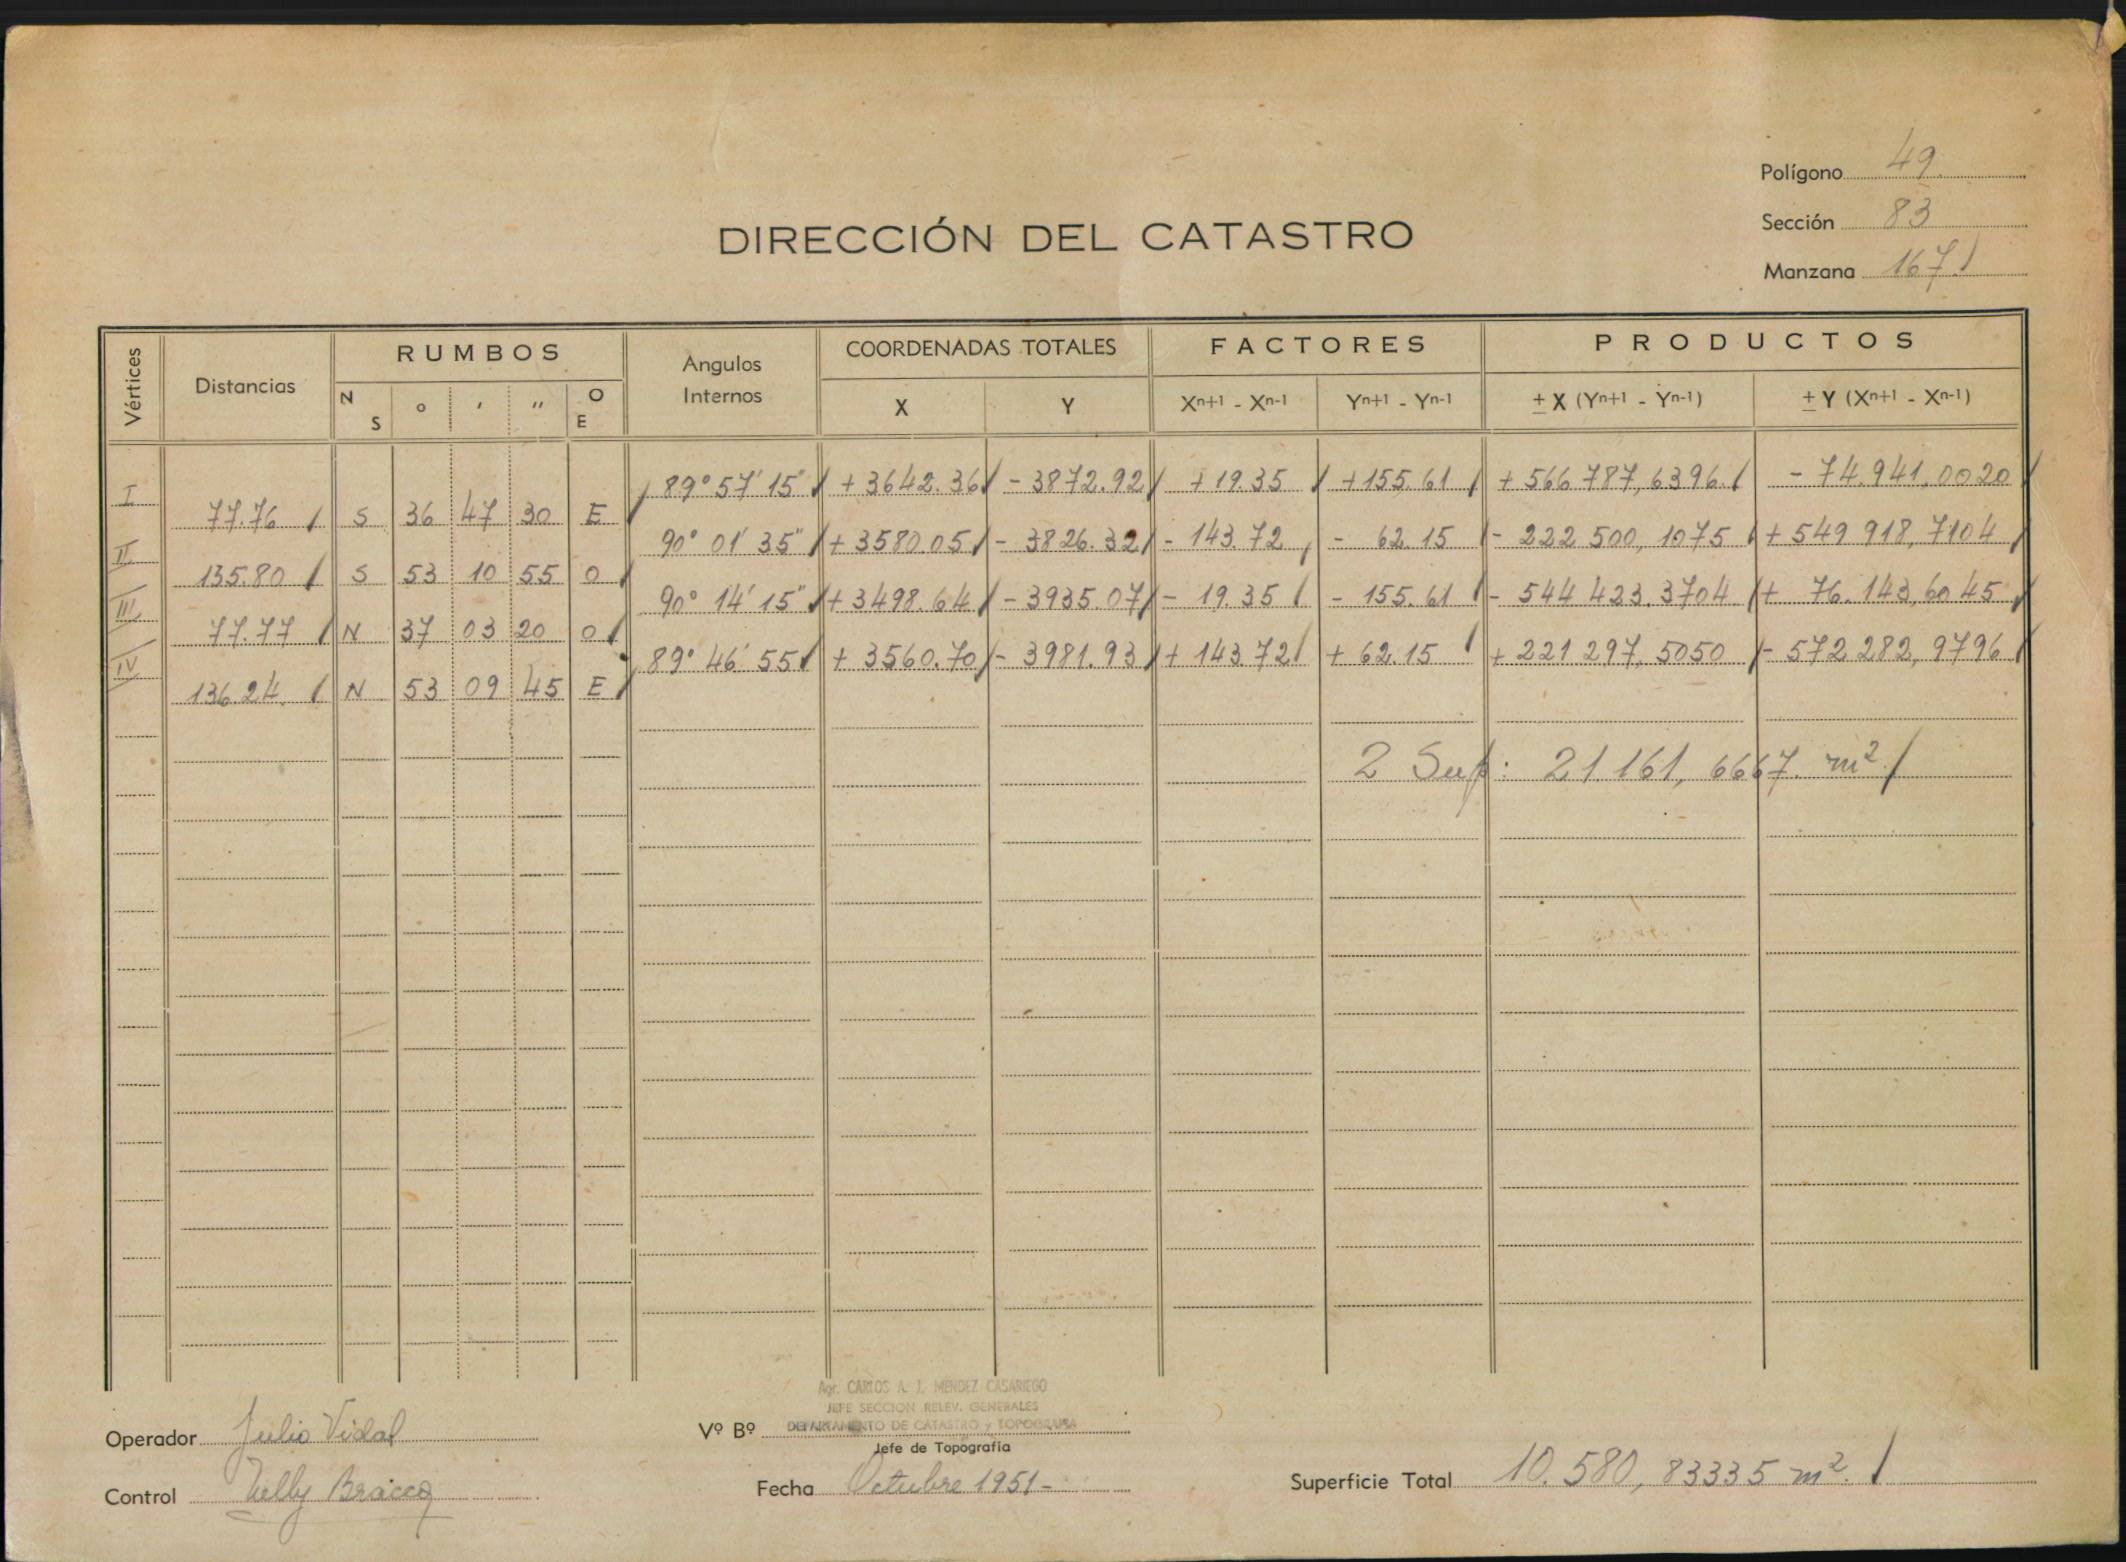 Polígono 49.
Sección 83
Manzana 167. /
DIRECCIÓN DEL CATASTRO
Vértices Distancias RUMBOS Angulos Internos COORDENADAS TOTALES FACTORES PRODUCTOS
N S o ' '' O E X Y Xn+1 - Xn-1 Yn+1 - Yn-1 ± X (Yn+1 - Yn-1) ± Y (Xn+1 - Xn-1)
I / 89° 57' 15" / + 3642.36 / - 3872.92 / + 19.35 / + 155.61 / + 566 787,6396. / - 74.941,0020 /
77.76 / S 36 47 30 E /
II 90° 01' 35" / + 3580.05 / - 3826.32 / - 143.72 / - 62.15 / - 222 500,1075 / + 549 918,7104 /
135.80 / S 53 10 55 O /
III 90° 14' 15" / + 3498.64 / - 3935.07 / - 19.35 / - 155.61 / - 544 423.3704 / + 76.143,6045 /
77.77 / N 37 03 20 O /
IV 89° 46' 55 / + 3560.70 / - 3981.93 / + 143.72 / + 62.15 / + 221 297,5050 / - 572 282,9796 /
136.24. / N 53 09 45 E /
2 Sup: 21 161,6667. m² /
Operador Julio Vidal
Control Nelly Bracco
Vº Bº
Agr. CARLOS A. J. MENDEZ CASARIEGO
JEFE SECCION RELEV. GENERALES
DEPARTAMENTO DE CATASTRO y TOPOGRAFIA
Jefe de Topografía
Fecha Octubre 1951-
Superficie Total 10.580,83335 m². /